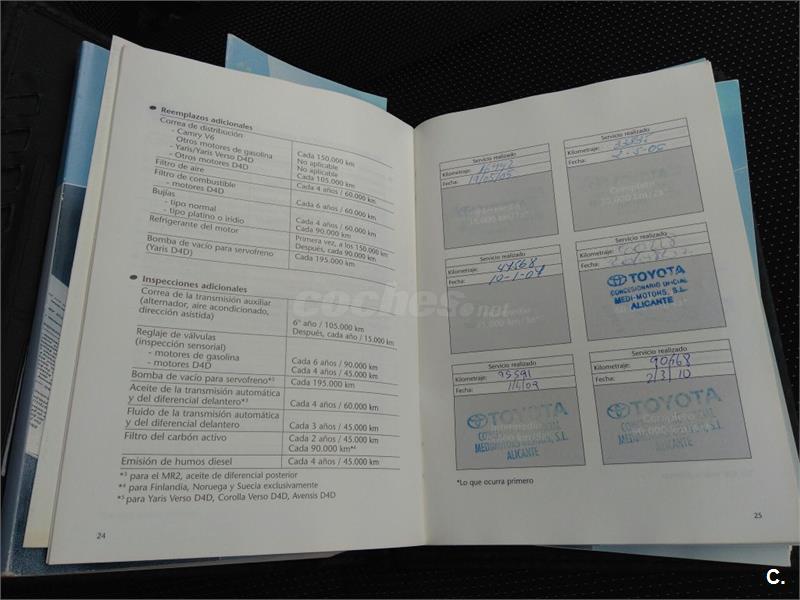 • Reemplazos adicionales
Correa de distribución
- Camry V6 Cada 150.000 km
Otros motores de gasolina No aplicable
- Yaris/Yaris Verso D4D No aplicable
- Otros motores D4D Cada 105.000 km
Filtro de aire Cada 4 años / 60.000 km
Filtro de combustible
- motores D4D Cada 6 años / 60.000 km
Bujías
- tipo normal Cada 4 años / 60.000 km
- tipo platino o iridio Cada 90.000 km
Refrigerante del motor Primera vez, a los 150.000 km
Después, cada 90.000 km
Bomba de vacío para servofreno Cada 195.000 km
(Yaris D4D)
• Inspecciones adicionales
Correa de la transmisión auxiliar
(alternador, aire acondicionado, 6º año / 105.000 km
dirección asistida) Después, cada año / 15.000 km
Reglaje de válvulas
(inspección sensorial)
- motores de gasolina Cada 6 años / 90.000 km
- motores D4D Cada 4 años / 45.000 km
Bomba de vacío para servofreno*⁵ Cada 195.000 km
Aceite de la transmisión automática
y del diferencial delantero*³ Cada 4 años / 60.000 km
Fluido de la transmisión automática
y del diferencial delantero Cada 3 años / 45.000 km
Filtro del carbón activo Cada 2 años / 45.000 km
Cada 90.000 km*⁴
Emisión de humos diesel Cada 4 años / 45.000 km
*³ para el MR2, aceite de diferencial posterior
*⁴ para Finlandia, Noruega y Suecia exclusivamente
*⁵ para Yaris Verso D4D, Corolla Verso D4D, Avensis D4D
24
Servicio realizado
Kilometraje:
Fecha:
Servicio realizado
Kilometraje:
Fecha: 2-5-06
Servicio realizado
Kilometraje: 47568
Fecha: 10-1-07
Servicio realizado
Kilometraje:
Fecha:
TOYOTA
CONCESIONARIO OFICIAL
MEDI-MOTORS, S.L.
ALICANTE
Servicio realizado
Kilometraje:
Fecha:
TOYOTA
ALICANTE
Servicio realizado
Kilometraje: 90668
Fecha: 2/3/10
TOYOTA
ALICANTE
*Lo que ocurra primero
25
coches.net
C.